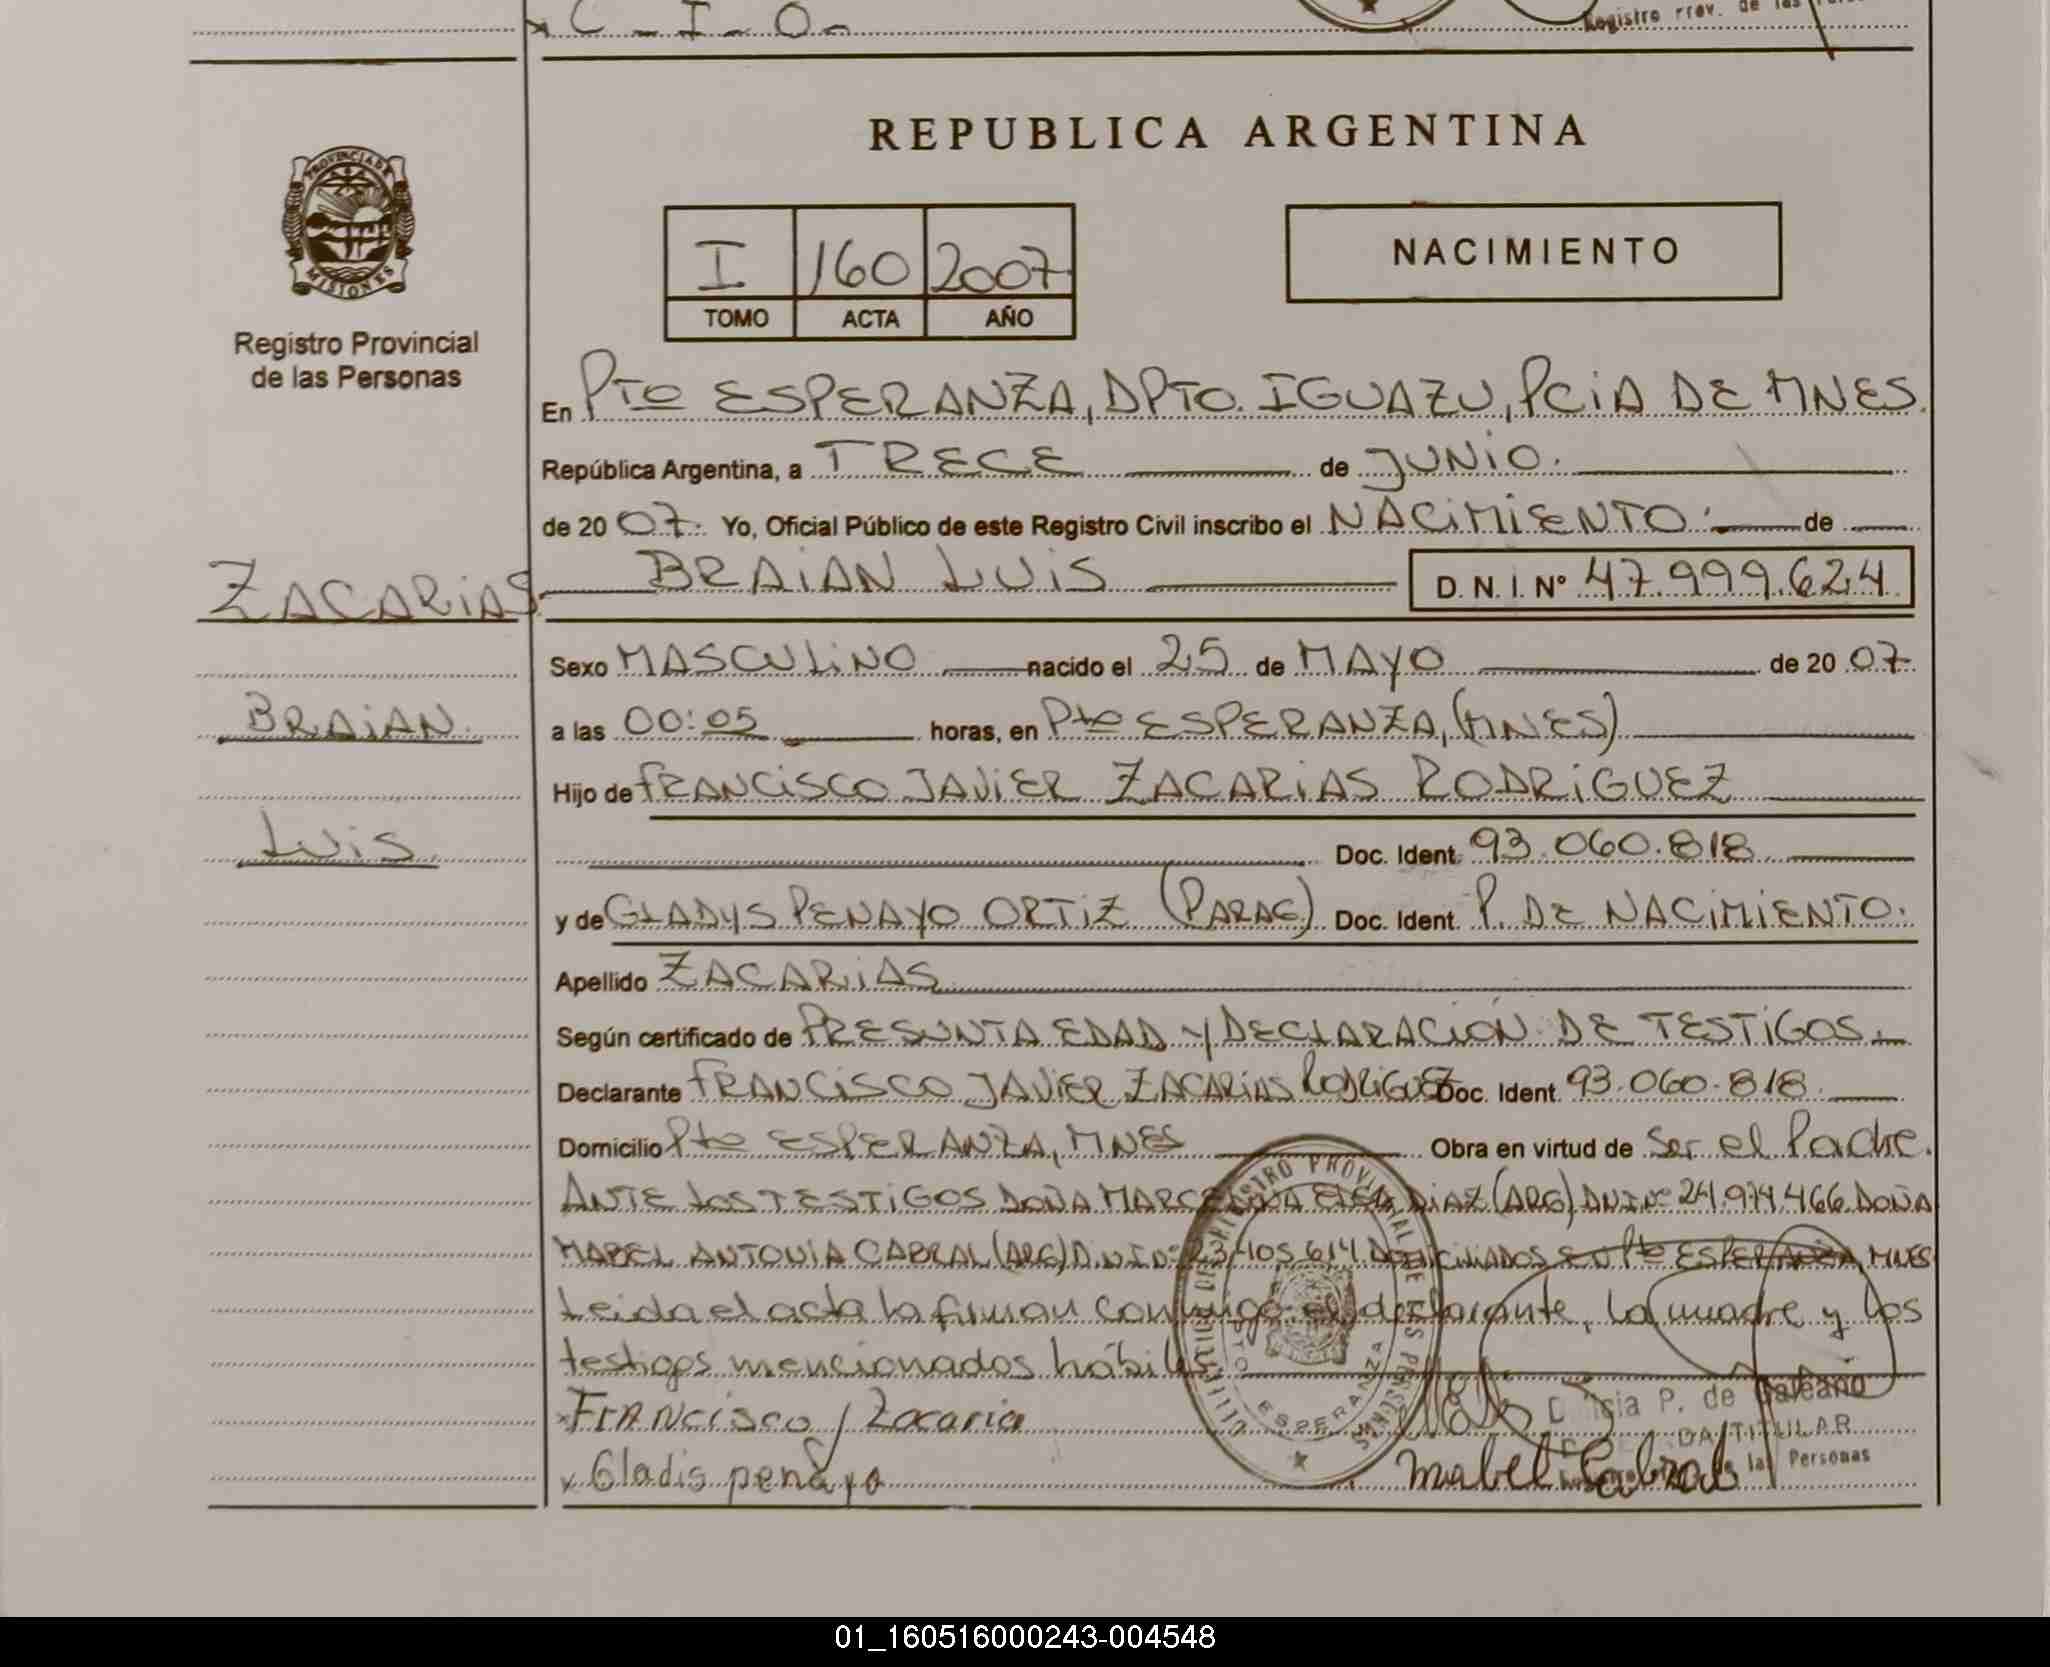 C - I - O -
Registro Prov. de las
REPUBLICA ARGENTINA
PROVINCIA DE MISIONES
Registro Provincial
de las Personas
I 160 2007
TOMO ACTA AÑO
NACIMIENTO
En Pto ESPERANZA, DPTO. IGUAZU, PCiA DE MNES.
República Argentina, a TRECE de JUNiO.
de 20 07. Yo, Oficial Público de este Registro Civil inscribo el NACiMiENTO. de
ZACARiAS BRAiAN LUiS D. N. I. Nº 47.999.624
Sexo MASCULiNO nacido el 25 de MAYO de 20 07
BRAiAN a las 00:05 horas, en Pto ESPERANZA, (MNES)
Hijo de FRANCiSCO JAViER ZACARiAS RODRiGUEZ
LUiS Doc. Ident. 93.060.818
y de GLADYS PENAYO ORTiZ (PARAG) Doc. Ident. P. DE NACiMiENTO.
Apellido ZACARiAS
Según certificado de PRESUNTA EDAD Y DECLARACiÓN DE TESTiGOS.
Declarante FRANCiSCO JAViER ZACARiAS RODRiGUEZ Doc. Ident. 93.060.818
Domicilio Pto ESPERANZA, MNES Obra en virtud de Ser el Padre.
ANTE LOS TESTiGOS DOÑA DiAZ (ARG) DNI Nº 24.974.466 DOÑA
MABEL ANTONiA CABRAL (ARG) D.N.I Nº 23.405.614 DOMiCiLiADOS EN Pto ESPERANZA, MNES
Leida el acta la firman conmigo el declarante, la madre y los
testigos mencionados hábiles
x FrANcisco J Zacaria
x Gladis penayo
REGISTRO PROVINCIAL DE LAS PERSONAS
PTO ESPERANZA
P. de Galeano
TITULAR
las Personas
Mabel Cabral
01_160516000243-004548